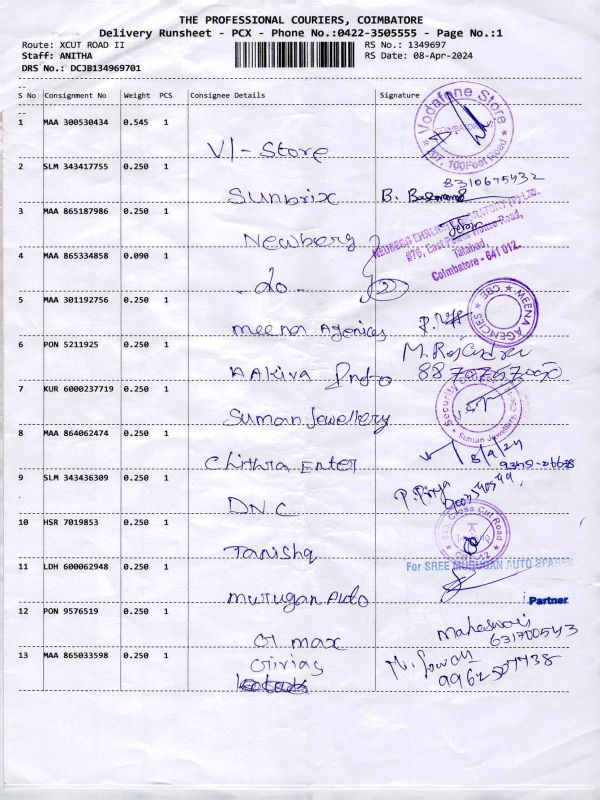 THE PROFESSIONAL COURIERS, COIMBATORE
Delivery Runsheet - PCX - Phone No.:0422-3505555 - Page No.:1
Route: XCUT ROAD II RS No.: 1349697
Staff: ANITHA RS Date: 08-Apr-2024
DRS No.: DCJB134969701
S No Consignment No Weight PCS Consignee Details Signature
1 MAA 300530434 0.545 1
Vodafone Store
COIMBATORE
100Feet Road
VI-Store
2 SLM 343417755 0.250 1
8310675432
Sunbrix B.
3 MAA 865187986 0.250 1
Newberg
#76, East Power House Road,
Tatabad,
Coimbatore - 641 012.
4 MAA 865334858 0.090 1
-do- 2
5 MAA 301192756 0.250 1
MEENA AGENCIES CBE
Meena Agencies
6 PON 5211925 0.250 1
AAkiva
7 KUR 6000237719 0.250 1
Security
Suman Jewellery
Suman Jewellery
8 MAA 864062474 0.250 1
Chithra Enter
9 SLM 343436309 0.250 1
P. Priya
DNC
10 HSR 7019853 0.250 1
Cross Cut Road
Tanishq
11 LDH 600062948 0.250 1
For SREE MURUGAN AUTO SPARES
Murugan Auto
Partner
12 PON 9576519 0.250 1
Maheswari
631700543
G1 max
13 MAA 865033598 0.250 1
Givias